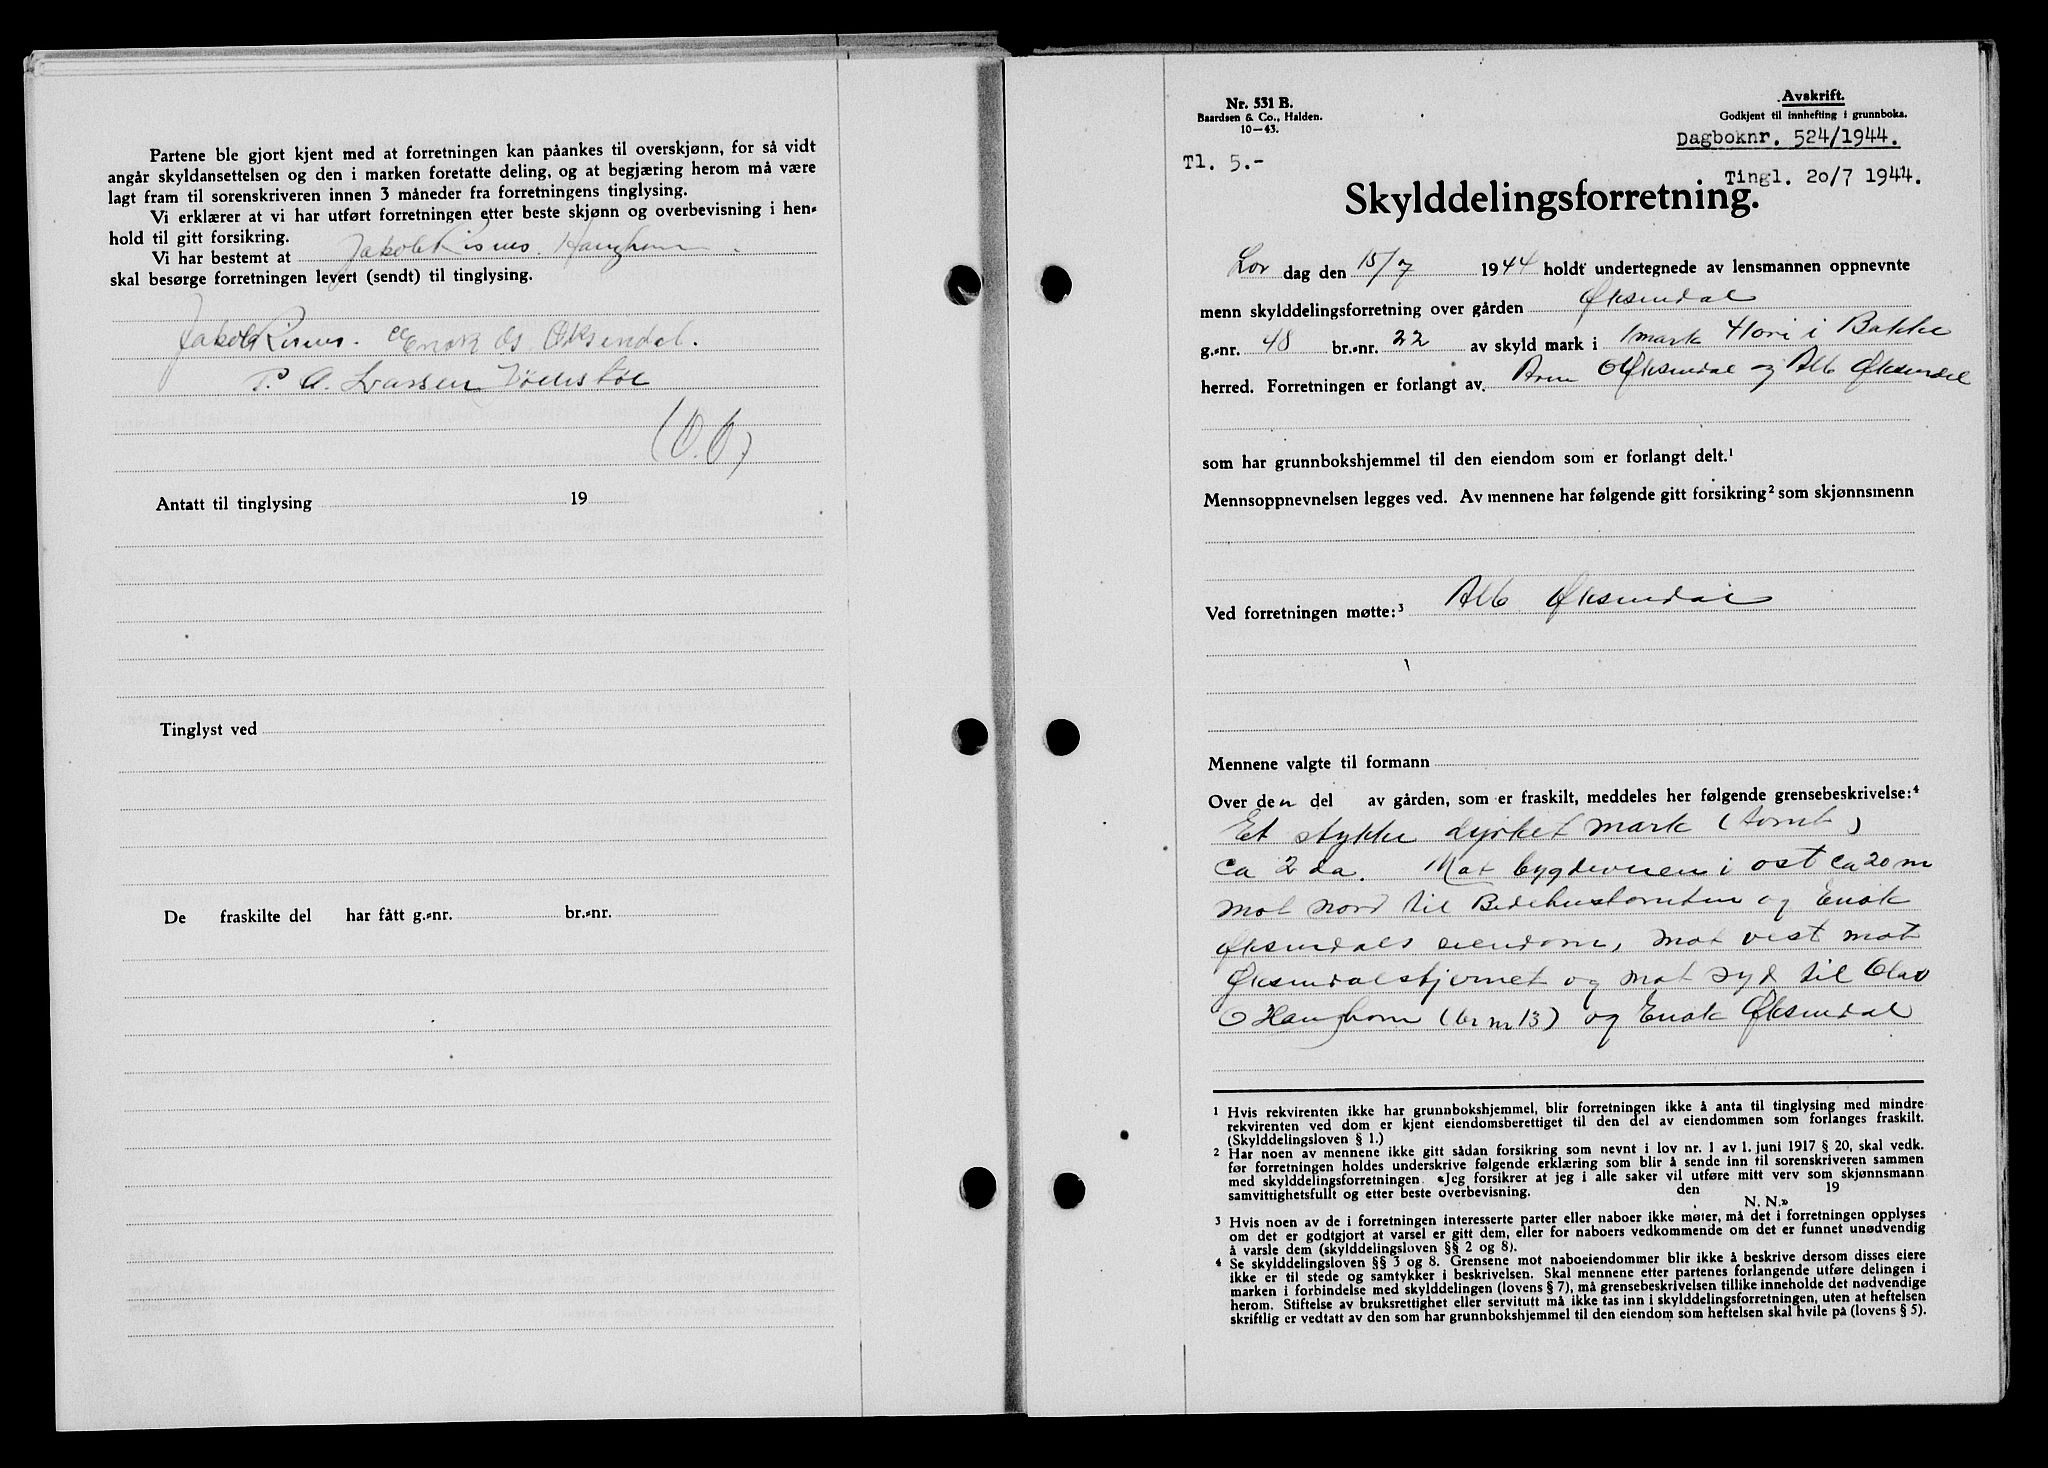 Partene ble gjort kjent med at forretningen kan påankes til overskjønn, for så vidt
angår skyldansettelsen og den i marken foretatte deling, og at begjæring herom må være
lagt fram til sorenskriveren innen 3 måneder fra forretningens tinglysing.
Vi erklærer at vi har utført forretningen etter beste skjønn og overbevisning i hen-
hold til gitt forsikring.
Vi har bestemt at Jakob Risnes. Haughom.
skal besørge forretningen levert (sendt) til tinglysing.
Jakob Risnes. Enok Øksendal.
P. A. Larsen
Antatt til tinglysing 19
Tinglyst ved
De fraskilte del har fått g.-nr. br.-nr.
Nr. 531 B.
Baardsen & Co., Halden.
10-43.
Avskrift.
Godkjent til innhefting i grunnboka.
Dagboknr. 524/1944.
Tl. 5.-
Tingl. 20/7 1944.
Skylddelingsforretning.
Lør dag den 15/7 1944 holdt undertegnede av lensmannen oppnevnte
menn skylddelingsforretning over gården Øksendal
g.-nr. 48 br.-nr. 22 av skyld mark i 1 mark 41 øre i Bakke
herred. Forretningen er forlangt av Øksendal og Alb Øksendal
som har grunnbokshjemmel til den eiendom som er forlangt delt.¹
Mennsoppnevnelsen legges ved. Av mennene har følgende gitt forsikring² som skjønnsmenn
Ved forretningen møtte:³ Alb Øksendal
Mennene valgte til formann
Over den del av gården, som er fraskilt, meddeles her følgende grensebeskrivelse:⁴
Et stykke dyrket mark (tomt)
ca 2 da. Mot bygdeveien i ost ca 20 m
mot nord til Bedehustomten og Enok
Øksendals eiendom, mot vest mot
Øksendalstjernet og mot syd til Olav
O Haughom (br nr 13) og Enok Øksendal
¹ Hvis rekvirenten ikke har grunnbokshjemmel, blir forretningen ikke å anta til tinglysing med mindre
rekvirenten ved dom er kjent eiendomsberettiget til den del av eiendommen som forlanges fraskilt.
(Skylddelingsloven § 1.)
² Har noen av mennene ikke gitt sådan forsikring som nevnt i lov nr. 1 av 1. juni 1917 § 20, skal vedk.
før forretningen holdes underskrive følgende erklæring som blir å sende inn til sorenskriveren sammen
med skylddelingsforretningen. «Jeg forsikrer at jeg i alle saker vil utføre mitt verv som skjønnsmann
samvittighetsfullt og etter beste overbevisning. den 19
N. N.»
³ Hvis noen av de i forretningen interesserte parter eller naboer ikke møter, må det i forretningen opplyses
om det er godtgjort at varsel er gitt dem, eller for naboers vedkommende om det er funnet unødvendig
å varsle dem (skylddelingsloven §§ 2 og 8).
⁴ Se skylddelingsloven §§ 3 og 8. Grensene mot naboeiendommer blir ikke å beskrive dersom disses eiere
ikke er til stede og samtykker i beskrivelsen. Skal mennene etter partenes forlangende utføre delingen i
marken i forbindelse med skylddelingen (lovens § 7), må grensebeskrivelsen tillike inneholde det nødvendige
herom. Stiftelse av bruksrettighet eller servitutt må ikke tas inn i skylddelingsforretningen, uten at heftelsen
skriftlig er vedtatt av den som har grunnbokshjemmel til den eiendom som heftelsen skal hvile på (lovens § 5).